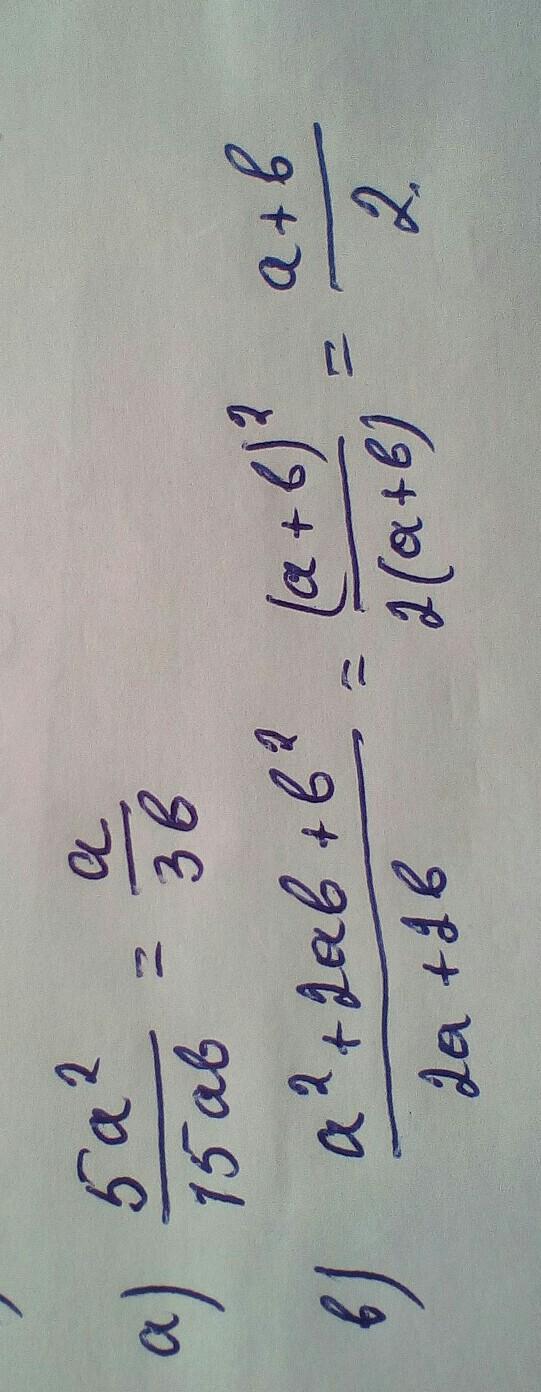 а) 5a² / 15ab = a / 3b
в) a² + 2ab + b² / 2a + 2b = (a + b)² / 2(a + b) = a + b / 2.